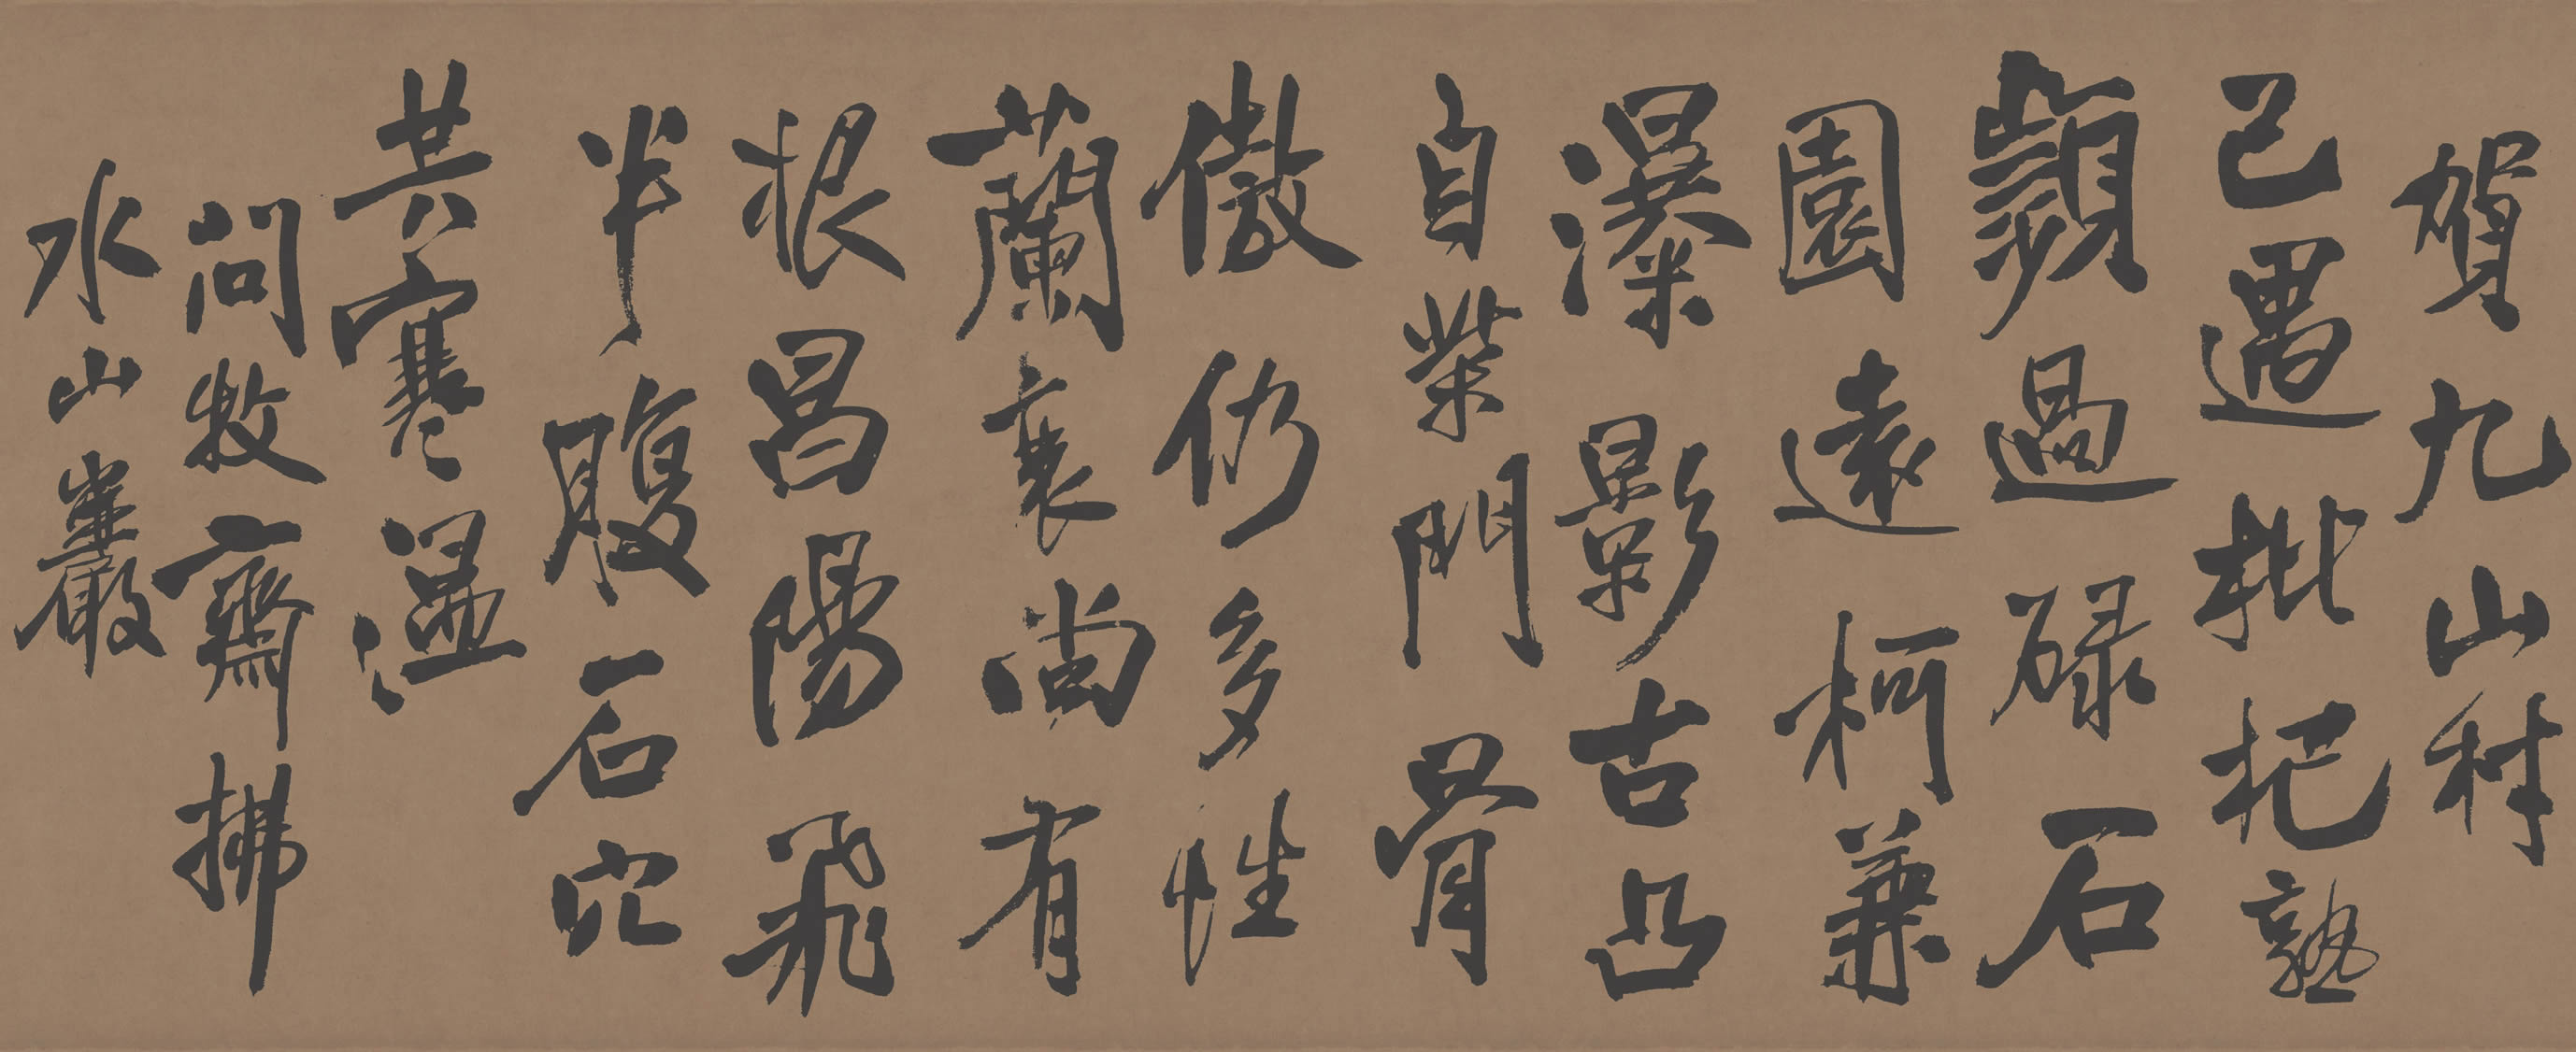 賀九山村
已遇枇杷熟
顰過碌石
園遠柯兼
瀑影古凸
自柴門骨
傲仍多性
蘭衰尚有
根昌陽飛
半腹石穴
共寒溫
問牧齋拂
水山巖